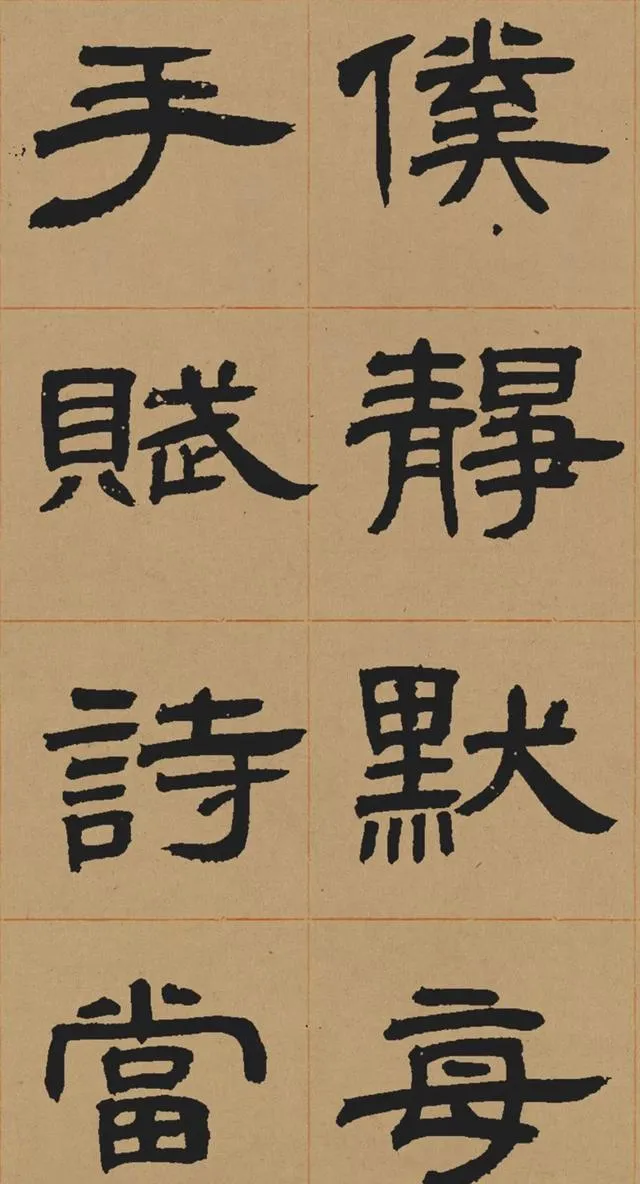 僕靜默每
手賦詩當